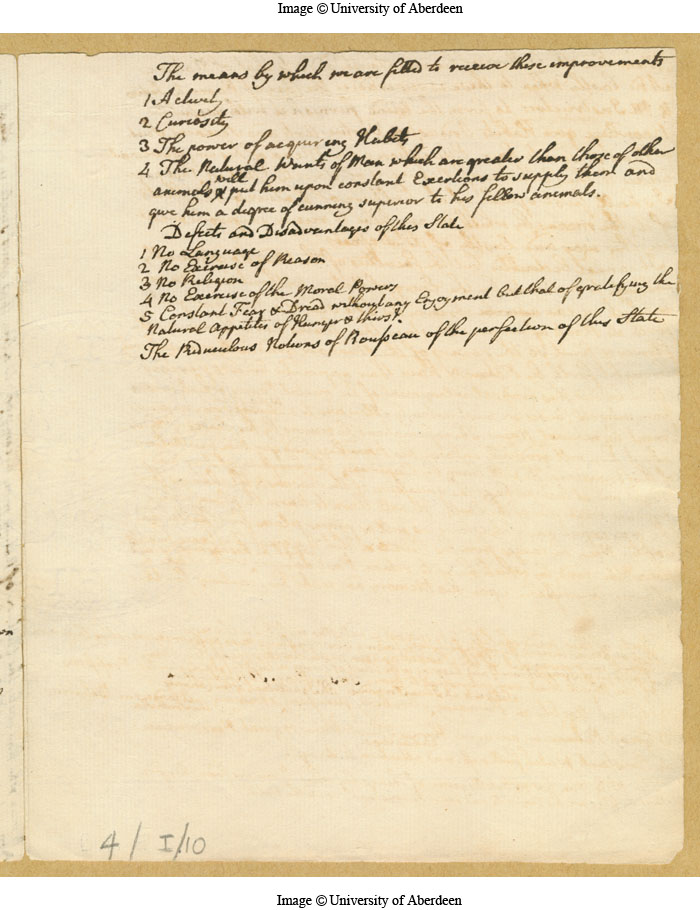 Image © University of Aberdeen
The means by which we are fitted to receive these improvements
1 Activity
2 Curiosity
3 The power of acquiring Habits
4 The Natural Wants of Man which are greater than those of other
will
animals & put him upon constant Exertions to supply them and
give him a degree of cunning superior to his fellow animals.
Defects and Disadvantages of this State
1 No Language
2 No Exercise of Reason
3 No Religion
4 No Exercise of the Moral Powers
5 Constant Fear & Dread without any Enjoyment but that of gratifying the
Natural Appetites of Hunger & thirst.
The Ridiculous Notions of Rousseau of the perfection of this State
on
4/I/10
Image © University of Aberdeen